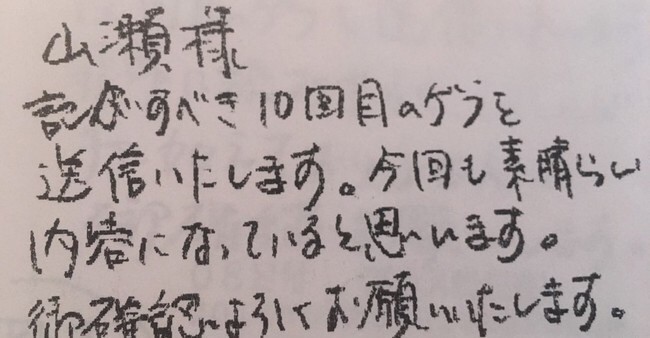 山瀬様
記念すべき10回目のゲラを
送信いたします。今回も素晴らしい
内容になっていると思います。
御確認よろしくお願いいたします。